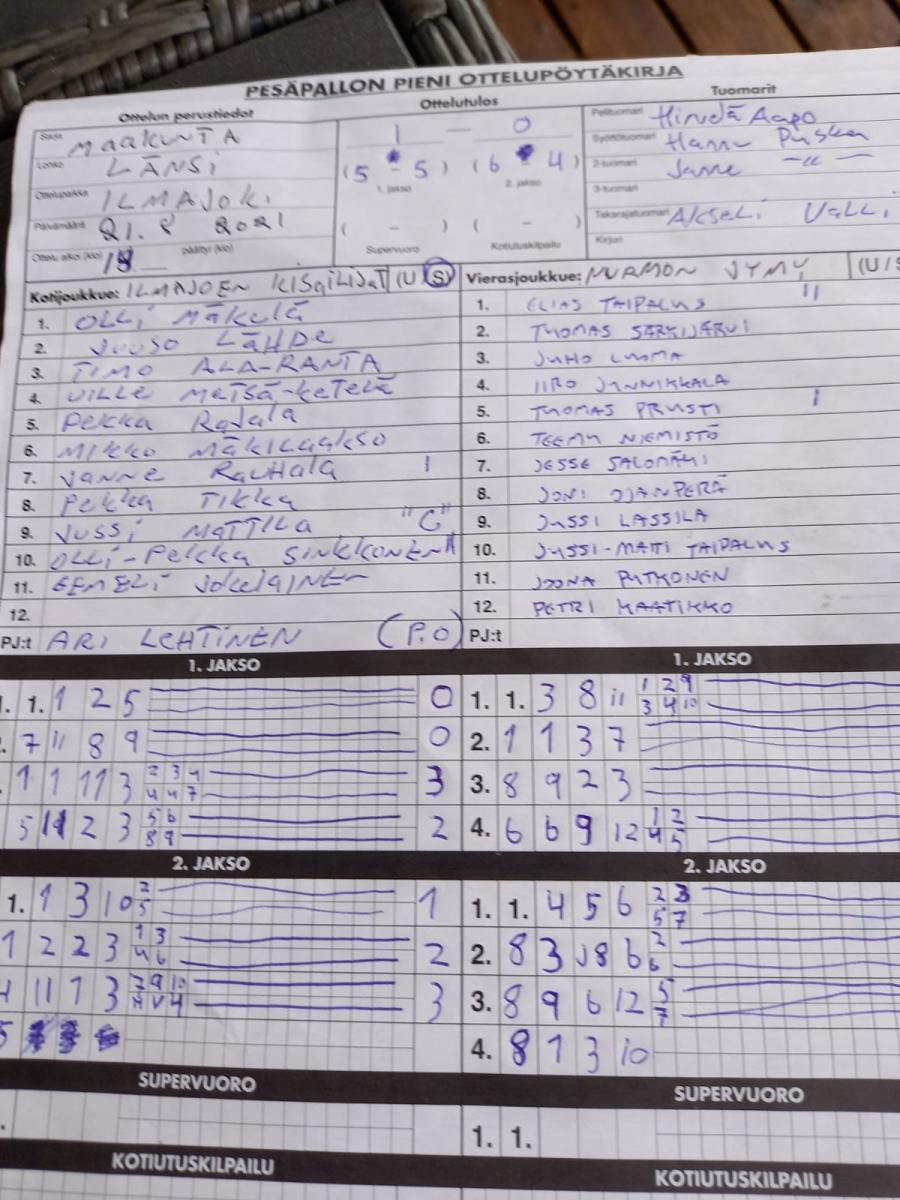 PESÄPALLON PIENI OTTELUPÖYTÄKIRJA
Ottelun perustiedot
Ottelutulos
Tuomarit
Sarja MAAKUNTA
Lohko LÄNSI
Ottelupaikka ILMAJOKI
Päivämäärä 21.8 2021
Ottelu alkoi (klo) päättyi (klo)
1 - 0
(5 - 5) (6 - 4)
1. jakso 2. jakso
( - ) ( - )
Supervuoro Kotiutuskilpailu
Pelituomari Aapo
Syöttötuomari Hannu
2-tuomari Janne -"-
3-tuomari
Takarajatuomari AKSELI VALLI
Kirjuri
Kotijoukkue: ILMAJOEN KISAILIJAT (U S)
1. OLLI MÄKELÄ
2. JUUSO LÄHDE
3. TIMO ALA-RANTA
4. VILLE METSÄ-KETELÄ
5. PEKKA RAJALA
6. MIKKO MÄKILAAKSO
7. JANNE RAUHALA I
8. PEKKA TIKKA
9. JUSSI MATTILA "C"
10. OLLI-PEKKA SINKKONEN
11. EEMELI JOKIAINEN
12.
PJ:t ARI LEHTINEN (P.O)
Vierasjoukkue: NURMON JYMY (U / S
1. ELIAS TAIPALUS II
2. TUOMAS SÄRKIJÄRVI
3. JUHO LUOMA
4. IIRO JUNNIKKALA
5. TUOMAS PRUSTI I
6. TEEMU NIEMISTÖ
7. JESSE SALOMÄKI
8. JONI OJANPERÄ
9. JUSSI LASSILA
10. JUSSI-MATTI TAIPALUS
11. JOONA PUTKONEN
12. PETRI MAATIKKO
PJ:t
1. JAKSO
1. 1 2 5 0
7 11 8 9 0
1 1 11 3 2 3 4 4 4 7 3
5 2 3 5 6 8 9 2
2. JAKSO
1. 1 3 10 2 5 1
1 2 2 3 1 3 4 6 2
4 11 1 3 7 9 10 3
5
SUPERVUORO
KOTIUTUSKILPAILU
1. JAKSO
1. 1. 3 8 11 1 2 9 3 4 10
2. 1 1 3 7
3. 8 9 2 3
4. 6 6 9 12 1 2 4 5
2. JAKSO
1. 1. 4 5 6 2 3 5 7
2. 8 3 J8 6 2 6
3. 8 9 6 12 5 7
4. 8 1 3 10
SUPERVUORO
1. 1.
KOTIUTUSKILPAILU